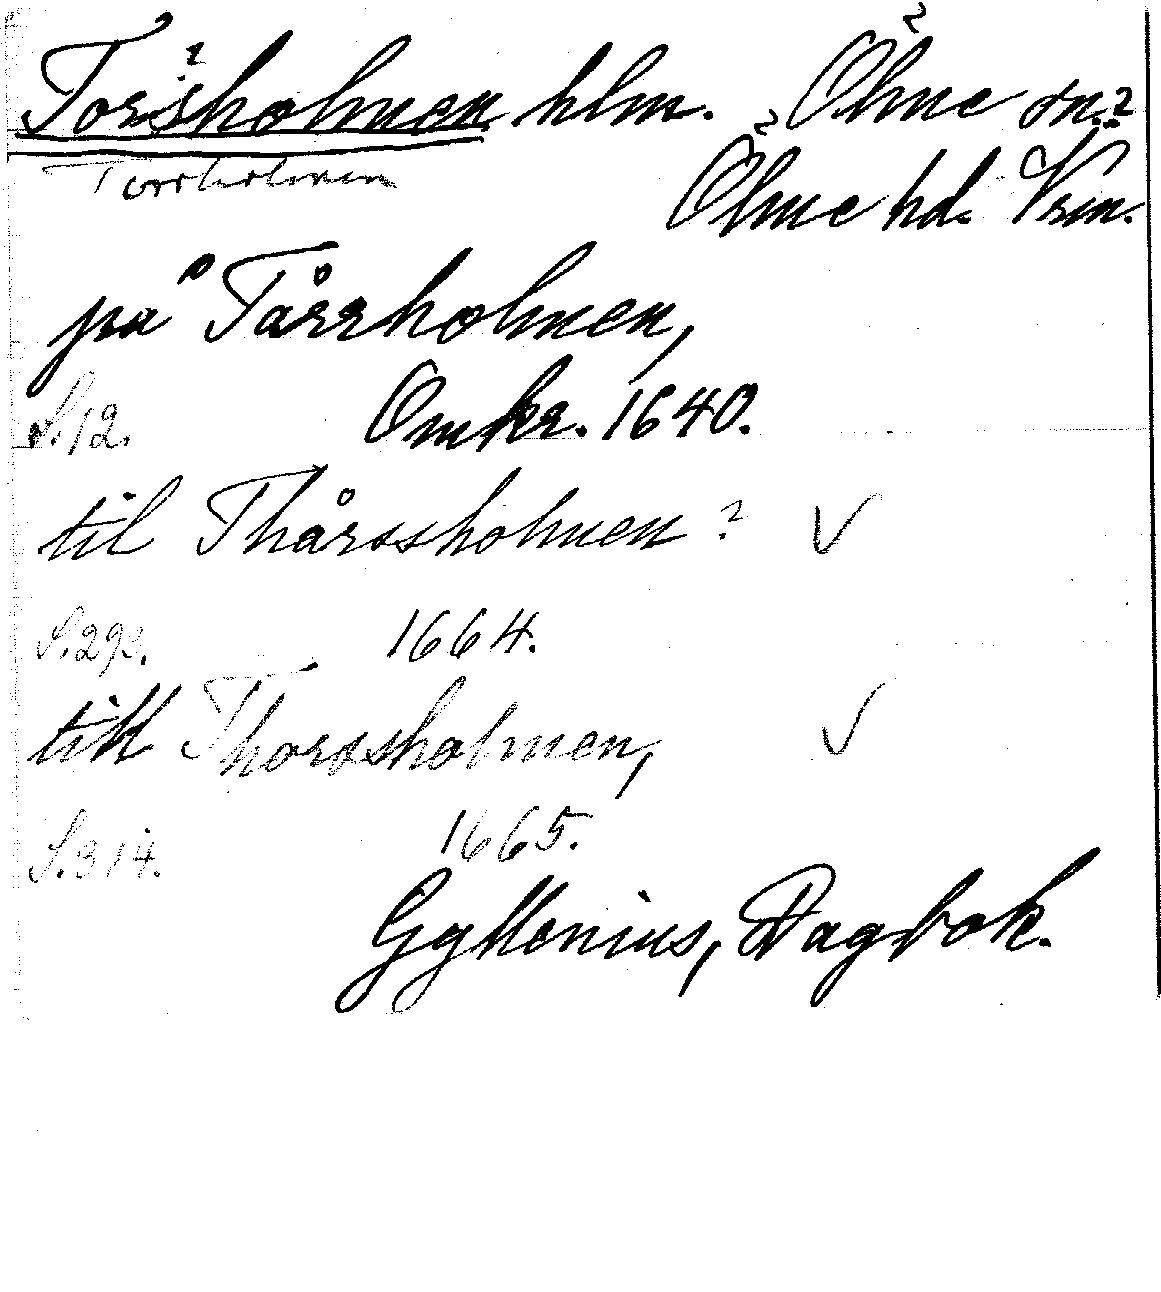 Torsholmen hlm. Ölme sn.?
Torrholmen
Ölme hd. Vrm.
på Tårrholmen,
S.12. Omkr. 1640.
til Thårssholmen ?
S.292. 1664.
till Thorsholmen,
S.314. 1665.
Gyllenius, Dagbok.